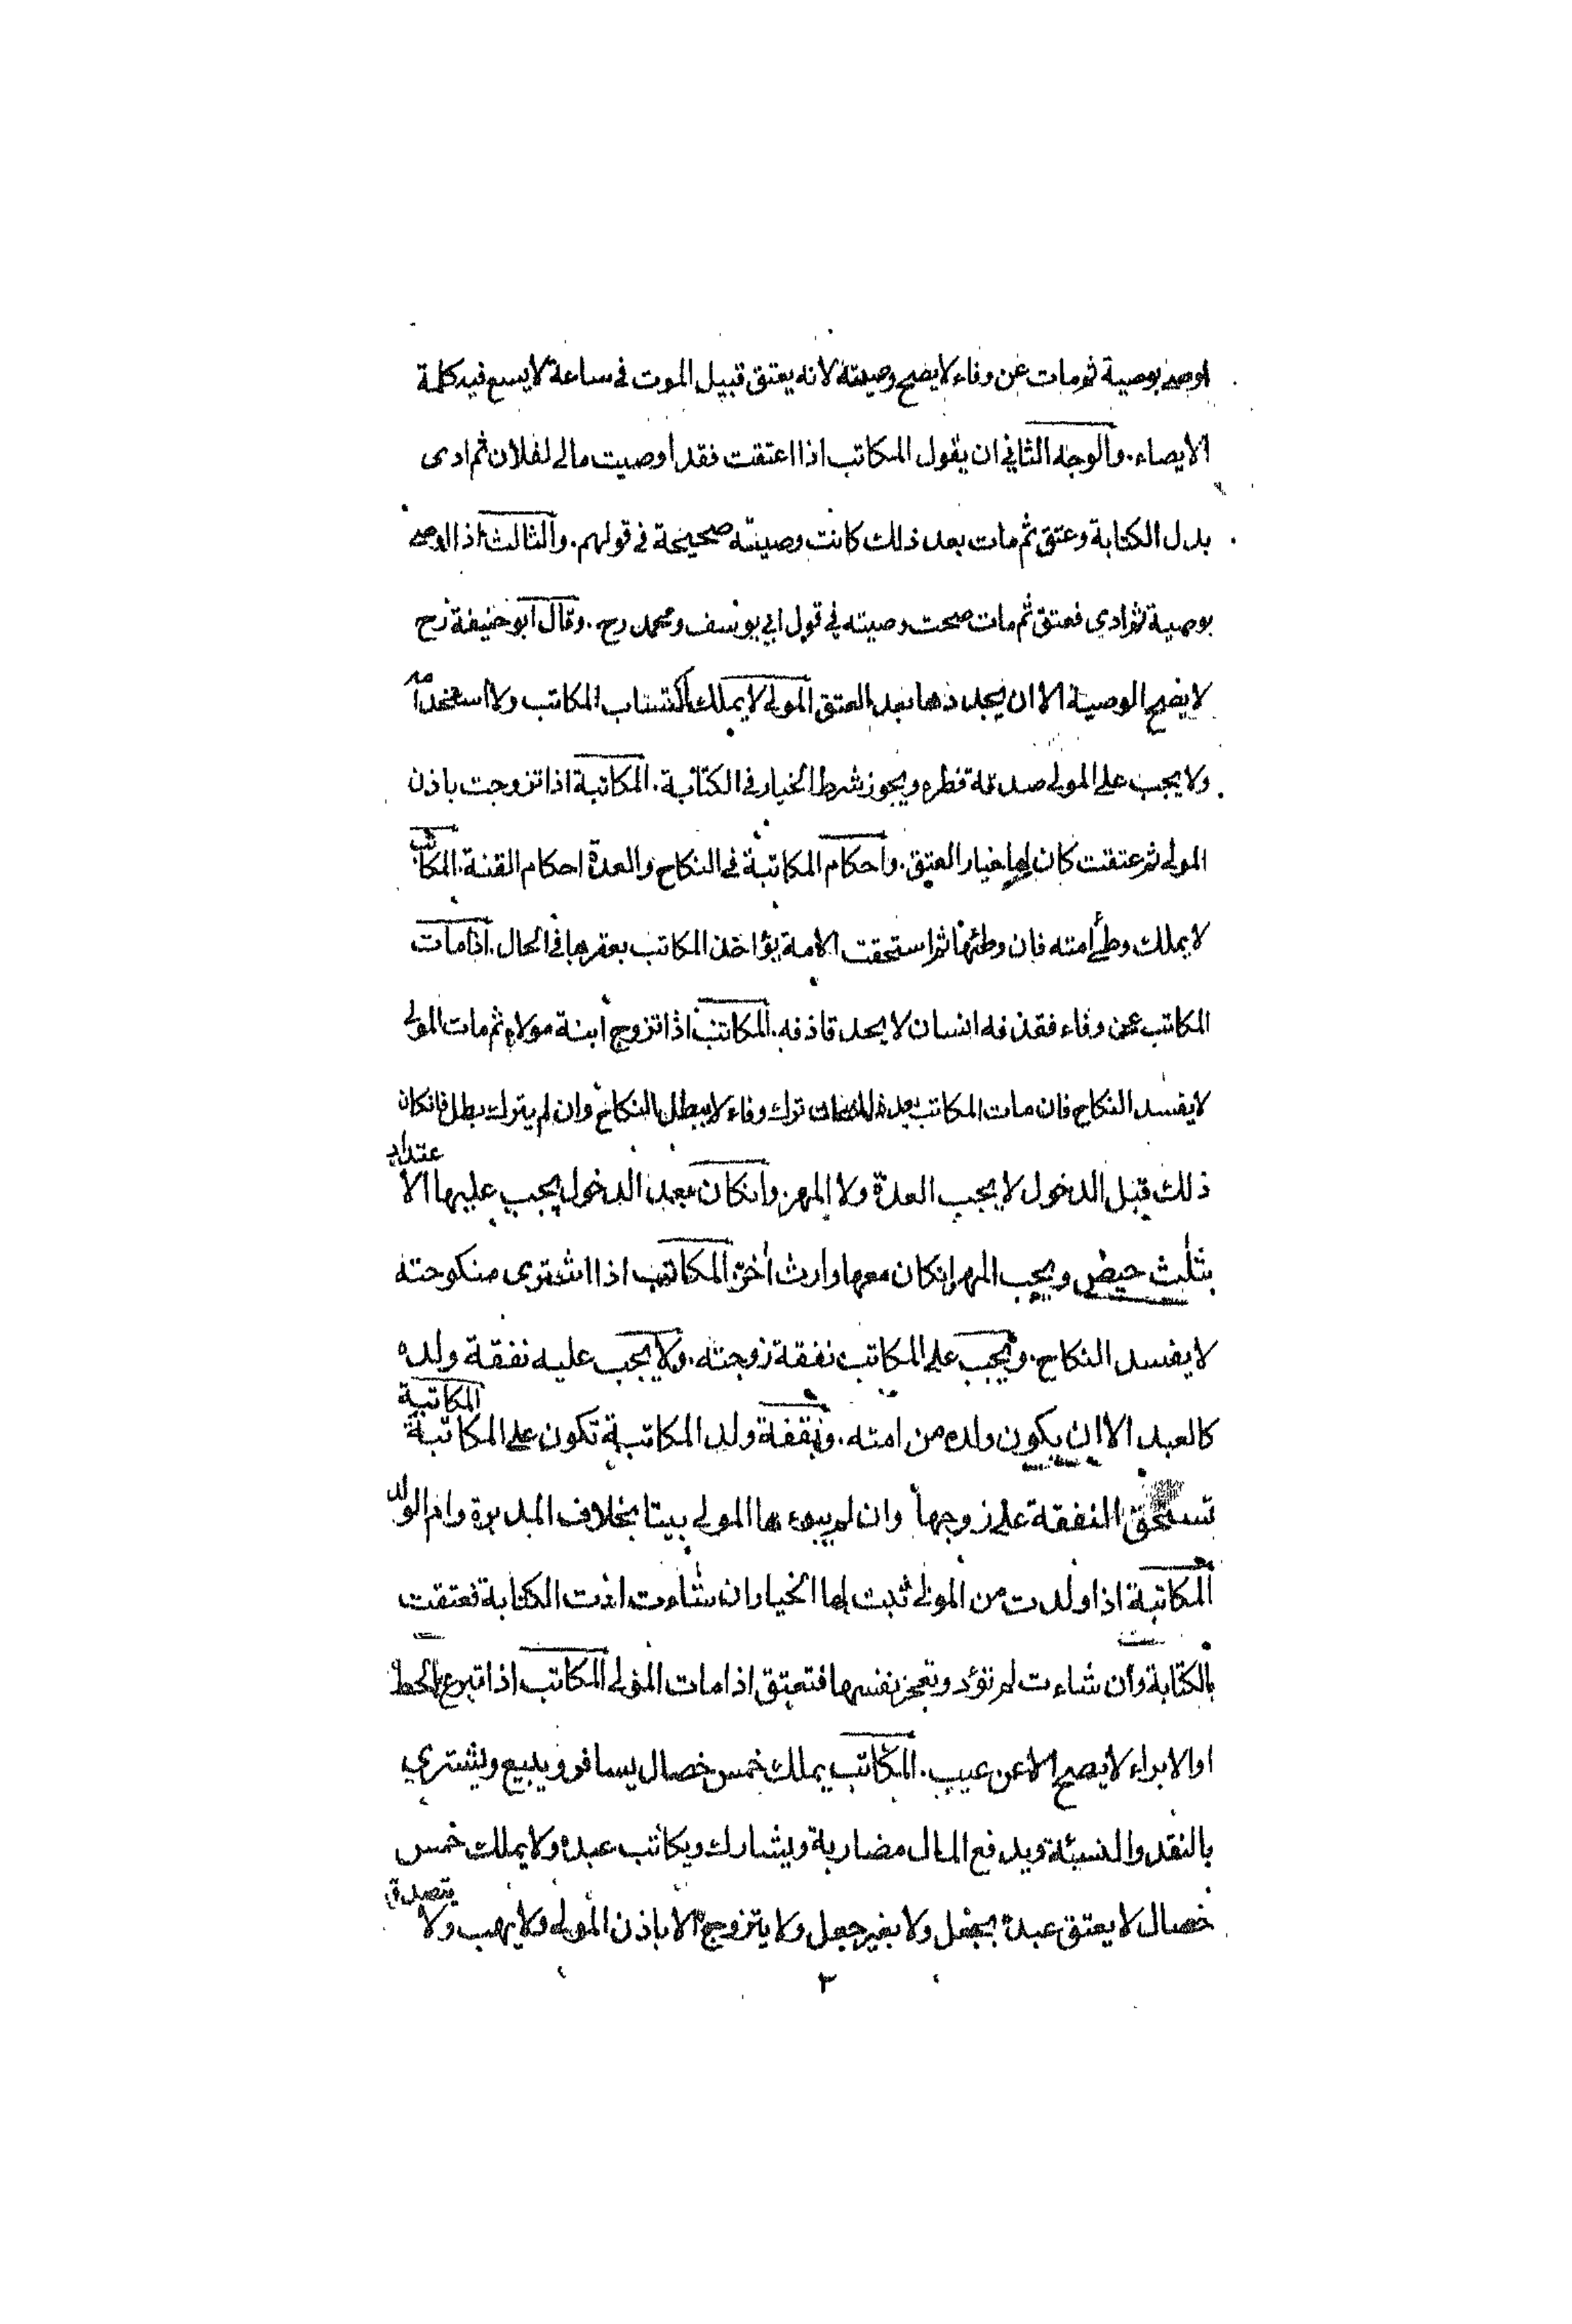 اوصى بوصية ثم مات عن وفاء لا يصح وصيته لانه يعتق قبيل الموت فى ساعة لا يسع فيه كلمة
الايصاء. والوجه الثاني ان يقول المكاتب اذا اعتقت فقد اوصيت مالى لفلان ثم ادى
بدل الكتابة وعتق ثم مات بعد ذلك كانت وصيته صحيحة فى قولهم. والثالث اذا اوصى
بوصية ثم ادى فعتق ثم مات صحت وصيته في قول ابي يوسف ومحمد رح. وقال ابو حنيفة رح
لا يصح الوصية الا ان يجددها بعد العتق المولى لا يملك اكتساب المكاتب ولا استخدامه
ولا يجب على المولى صدقة فطره ويجوز شرط الخيار فى الكتابة. المكاتبة اذا تزوجت باذن
المولى ثم عتقت كان لها خيار العتق. واحكام المكاتبة فى النكاح والعدة احكام القنة. المكاتب
لا يملك وطئ امته فان وطئها ثم استحقت الامة يؤاخذ المكاتب بعقرها فى الحال. اذا مات
المكاتب عن وفاء فقذفه انسان لا يحد قاذفه. المكاتب اذا تزوج ابنة مولاه ثم مات المولى
لا يفسد النكاح فان مات المكاتب بعد ترك وفاء لا يبطل النكاح وان لم يترك بطل فانكان
ذلك قبل الدخول لا يجب العدة ولا المهر وانكان بعد الدخول يجب عليها الاعتداد
بثلث حيض ويجب المهر انكان معها وارث اخر المكاتب اذا اشترى منكوحته
لا يفسد النكاح. ويجب على المكاتب نفقة زوجته. ولا يجب عليه نفقة ولده
كالعبد الا ان يكون ولده من امته. ونفقة ولد المكاتبة تكون على المكاتبة المكاتبة
تستحق النفقة على زوجها وان لم يبوءها المولى بيتا بخلاف المدبرة وام الولد
المكاتبة اذا ولدت من المولى ثبت لها الخيار ان شاءت ادت الكتابة فعتقت
بالكتابة وان شاءت لم تؤد وتعجز نفسها فتعتق اذا مات المولى المكاتب اذا تبرع بالحط
او الابراء لا يصح الا عن عيب. المكاتب يملك خمس خصال يسافر ويبيع ويشتري
بالنقد والنسيئة ويدفع المال مضاربة ويشارك ويكاتب عبده ولا يملك خمس
خصال لا يعتق عبده بجعل ولا بغير جعل ولا يتزوج الا باذن المولى ولا يهب ولا يتصدق
٣